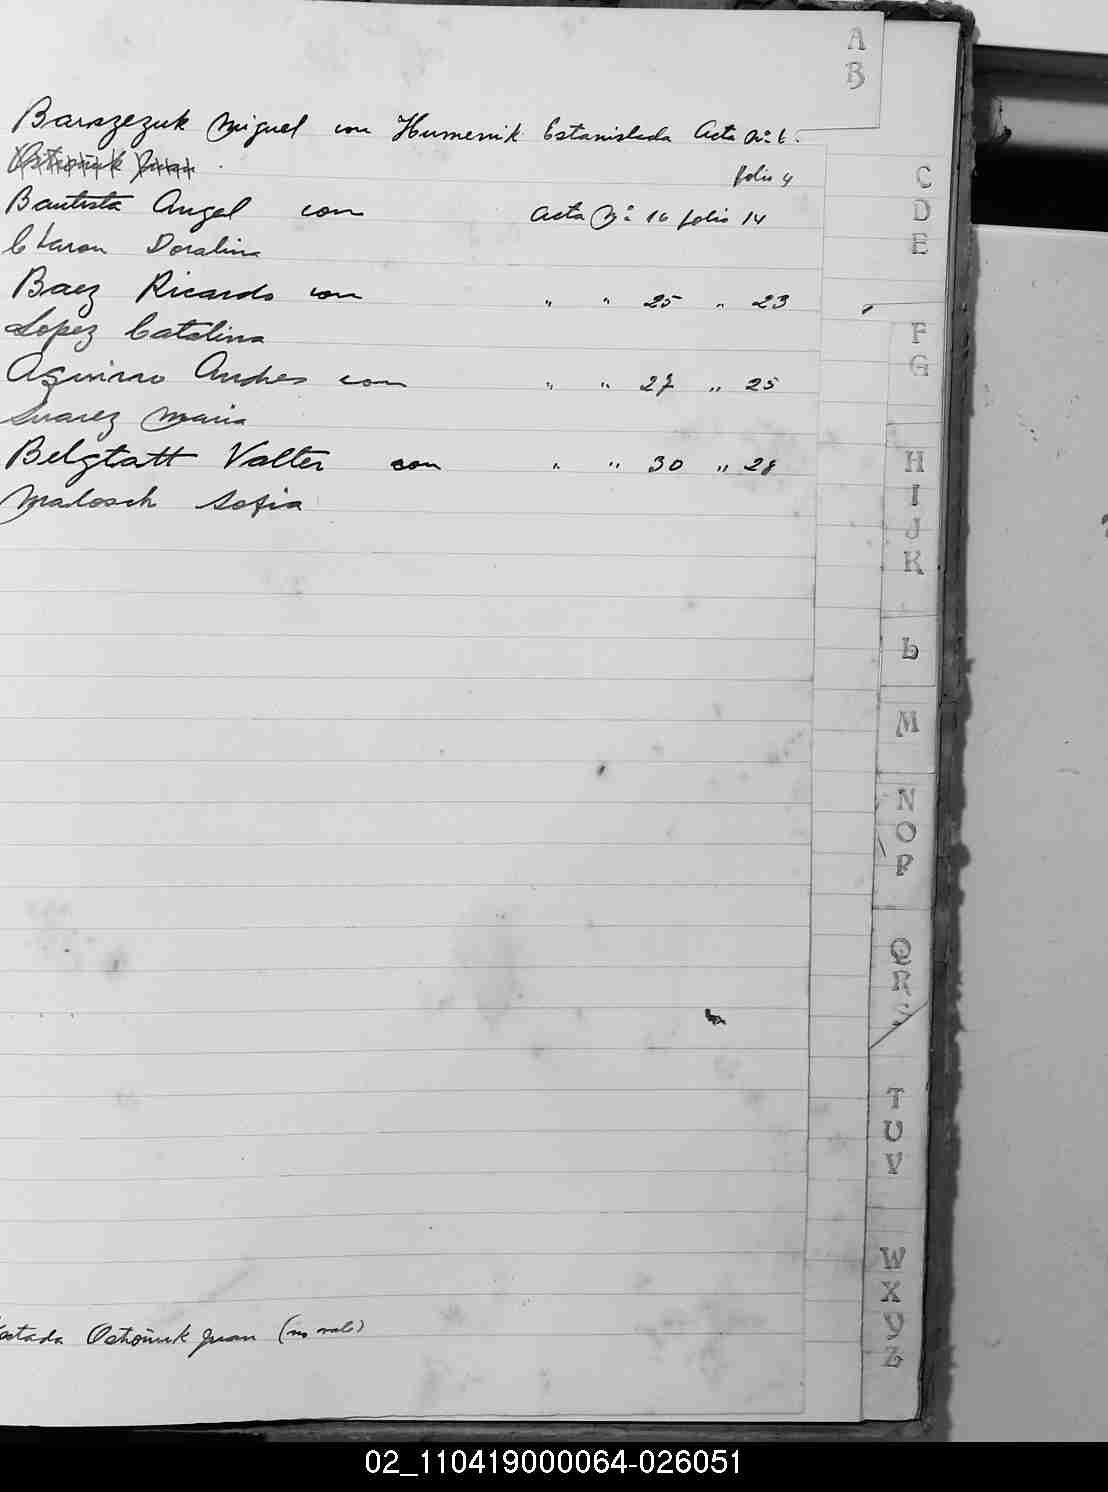 A
B
Barszezuk Miguel con Humenik Estanislada Acta Nº 6.
folio 4
Bautista Angel con Acta Nº 16 folio 14
Doralina
Baez Ricardo con " " 25 " 23
Lopez Catalina
Aguirre Andres con " " 27 " 25
Suarez Maria
Belgtatt Valter con " " 30 " 28
Malosch Sofia
Juan (no vale)
C
D
E
F
G
H
I
J
K
L
M
N
O
P
Q
R
S
T
U
V
W
X
Y
Z
02_110419000064-026051